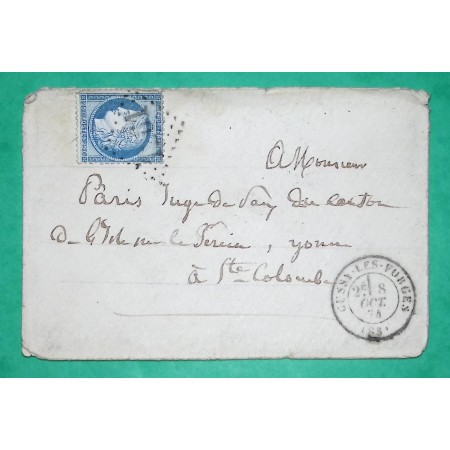 A Monsieur
Paris Juge de Paix du canton
De L'Isle sur le Serein, yonne
à Ste Colombe
CUSSY-LES-FORGES
2E 8
OCT.
74
(88)